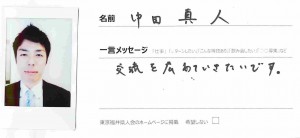 名前 中田真人
一言メッセージ
交流を広めていきたいです。
東京福井県人会のホームページに掲載 希望しない □